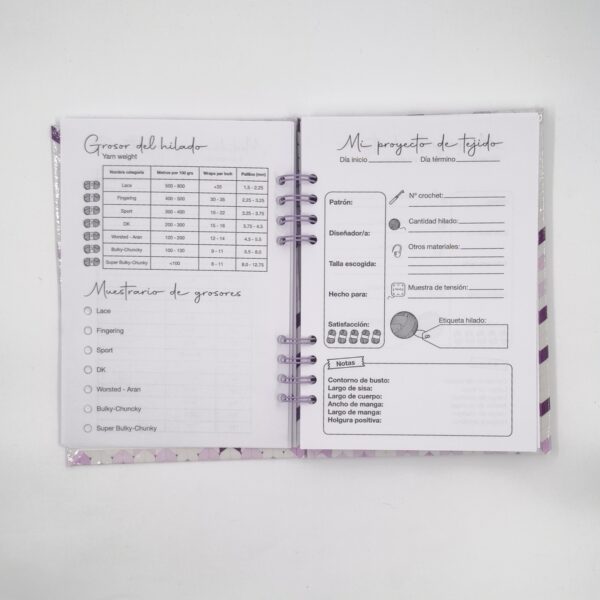 Grosor del hilado
Yarn weight
Nombre categoría Metros por 100 grs Wraps per inch Palillos (mm)
Lace 500 - 800 +35 1,5 - 2,25
Fingering 400 - 500 30 - 35 2,25 - 3,25
Sport 300 - 400 18 - 22 3,25 - 3,75
DK 200 - 300 15 - 18 3,75 - 4,5
Worsted - Aran 120 - 200 12 - 14 4,5 - 5,5
Bulky-Chuncky 100 - 130 9 - 11 5,5 - 8,0
Super Bulky-Chunky <100 8 - 11 8,0 - 12,75
Muestrario de grosores
Lace
Fingering
Sport
DK
Worsted - Aran
Bulky-Chuncky
Super Bulky-Chunky
Mi proyecto de tejido
Día inicio Día término
Patrón:
Diseñador/a:
Talla escogida:
Hecho para:
Satisfacción:
Nº crochet:
Cantidad hilado:
Otros materiales:
Muestra de tensión:
Etiqueta hilado:
Notas
Contorno de busto:
Largo de sisa:
Largo de cuerpo:
Ancho de manga:
Largo de manga:
Holgura positiva: